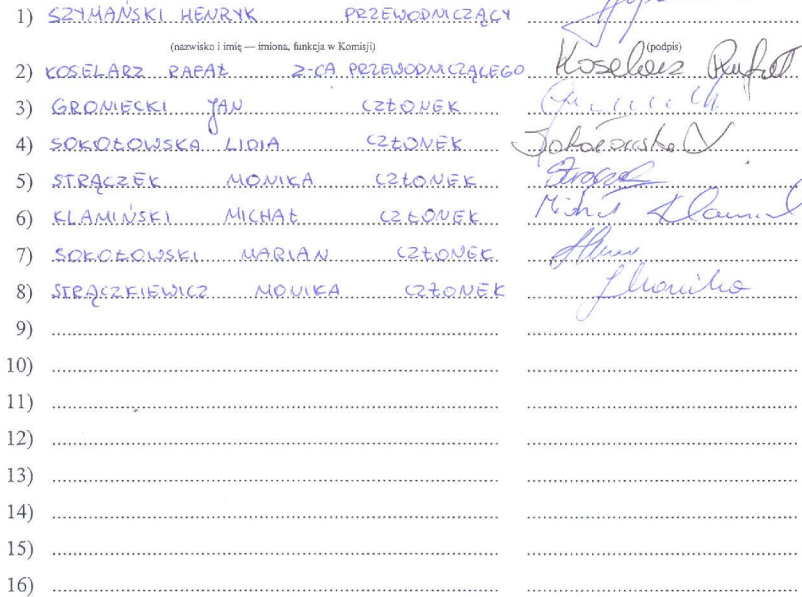 1) SZYMAŃSKI HENRYK PRZEWODNICZĄCY
(nazwisko i imię — imiona, funkcja w Komisji) (podpis)
2) KOSELARZ RAFAŁ Z-CA PRZEWODNICZĄCEGO Koselarz Rafał
3) GRONIECKI JAN CZŁONEK
4) SOKOŁOWSKA LIDIA CZŁONEK Sokołowska
5) STRĄCZEK MONIKA CZŁONEK
6) KLAMIŃSKI MICHAŁ CZŁONEK Michał
7) SOKOŁOWSKI MARIAN CZŁONEK
8) STRĄCZKIEWICZ MONIKA CZŁONEK Monika
9)
10)
11)
12)
13)
14)
15)
16)